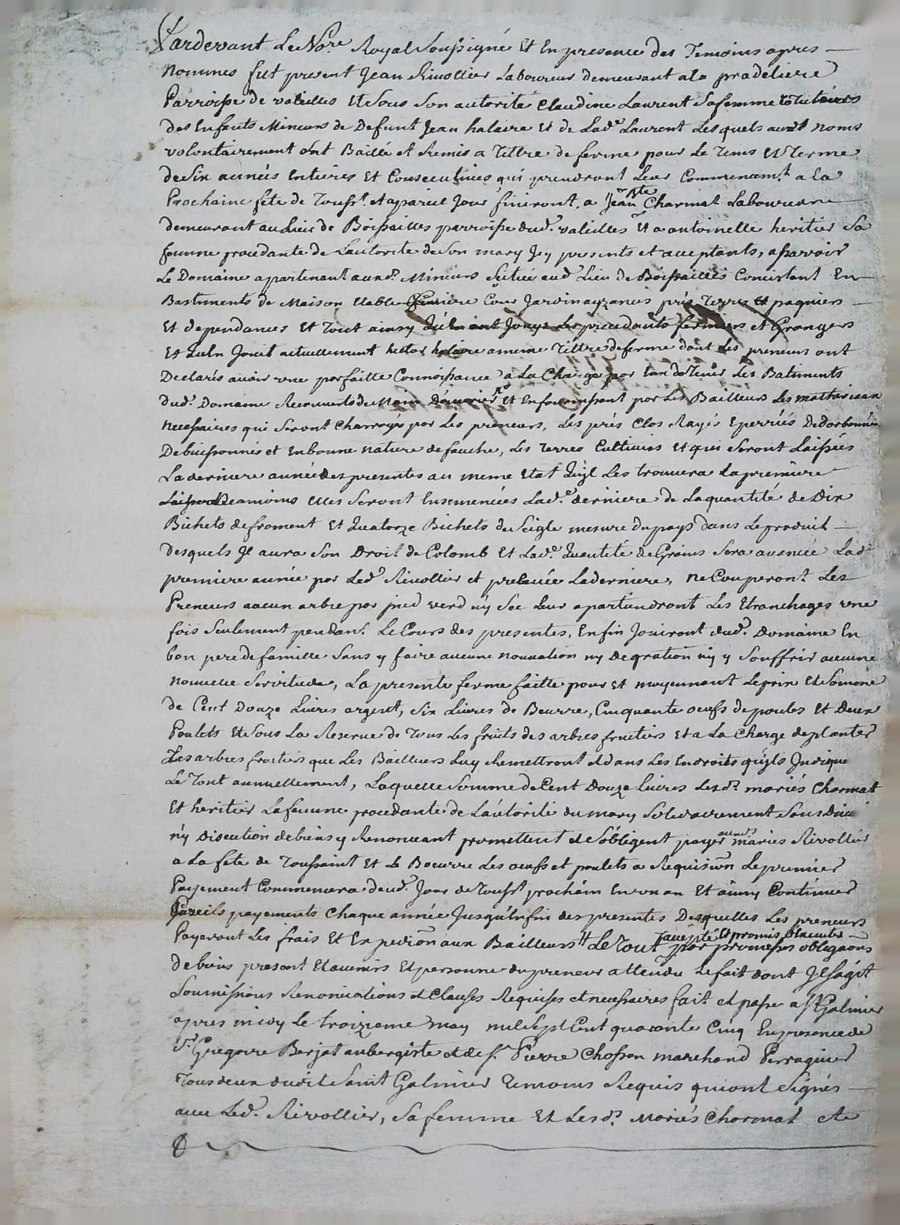 Pardevant Le No.re Royal Soussigné et En presence des Temoins apres
Nommes fut present Jean Rivollier Laboureur demeurant a la pradeliere
Parroisse de valeilles Et Sous Son autorité Claudine Laurent Sa femme
des Enfants Mineurs de Defunt Jean halaire Et de Lad.e Laurent Les quels aud.t noms
volontairement ont Baillé et Remis a Tiltre de ferme pour Le Tems Et Terme
de Six années Entieres Et Consecutives qui prendront Leur Commencem.t a La
Prochaine fête de Touss.t et a pareil Jour finiront, a Jean B.te Charmat Laboureur
demeurant au Lieu de Boissailles parroisse dud. valeilles Et a antoinette heritier Sa
femme procedante de Lautorité de Son mary Icy presents et acceptants, a Scavoir
Le Domaine apartenant auxd. Mineurs Scitué aud. Lieu de Boissailles Consistant En
Bastiments de Maison Etable Cour Jardin aysances prés Terres Et paquiers
Et dependances Et Tout ainsy Quen ont Jouys Les precedants fermiers et Grangers
Et Quen Jouit actuellement halaire a meme Tiltre de ferme dont Les preneurs ont
Declarés avoir une parfaitte Connoissance a La Charge par Eux de Tenir Les Batiments
dud. Domaine Recouverts de Main Et En fournissant par Les Bailleurs Les matheriaux
necessaires qui Seront Charroyés par Les preneurs, Les prés Clos Rayés
Debuissonnés et En bonne nature de fauche, Les Terres Cultivées Et qui Seront Laissées
La derniere année des presentes au meme Etat Quil Les trouvera La premiere
Elles Seront Ensemencées Lad.e derniere de La quantité de Dix
Bichets de froment Et Quatorze Bichets de Seigle mesure du pays dans Le produit
desquels Il aura Son Droit de Colomb Et Lad.e Quantité de Grains Sera avancée Lad.e
premiere année par Led. Rivollier et prelevée La derniere, Ne Couperont Les
Preneurs aucun arbre par pied verd ny Sec Leur apartiendront Les Etranchages une
fois Seulement pendant Le Cours des presentes, Enfin Jouiront dud. Domaine En
bon pere de famille Sans y faire aucune novation ny Degration ny y Souffrir aucune
nouvelle Servitude, La presente ferme faitte pour Et moyennant Le prix Et Somme
de Cent Douze Livres argent, Six Livres de Beurre, Cinquante œufs de poules Et Deux
Poulets Et Sous La Reserve de Tous Les fruits des arbres fruitiers Et a La Charge de planter
Les arbres fruitiers que Les Bailleurs Luy Remettront Et dans Les Endroits qu'ils Indique
Le Tout annuellement, Laquelle Somme de Cent Douze livres Lesd. mariés Charmat
Et heritier La femme procedante de Lautorité du mary Solidairement Sans Divi
ny Discution de biens y Renonceant promettent et Sobligent payer auxd. mariés Rivollier
a La fête de Toussaint Et Le Beurre Les œufs et poulets a Requisi.on Le premier
Payement Commencera dud. Jour de Touss.t prochain En un an Et ainsy Continuer
Pareils payements Chaque année Jusqu'en fin des presentes Desquelles Les preneurs
Payeront Les frais Et Expedi.on aux Bailleurs Le Tout accepté Et promis Executer par promesses obligaons
de biens present Et avenirs Et personne du preneur attendu Le fait dont Il Sagit
Soumissions Renonciations et Clauses Requises et necessaires fait et passé a S.t Galmier
apres midy Le troizieme may mil Sept Cent quarante Cinq En presence de
S.r Gregoire Berjat aubergiste et de S.r Pierre Chosson marchand Perruquier
Tous deux dudit Saint Galmier Temoins Requis qui ont Signés
avec Led. Rivollier, Sa femme Et Lesd. Mariés Charmat